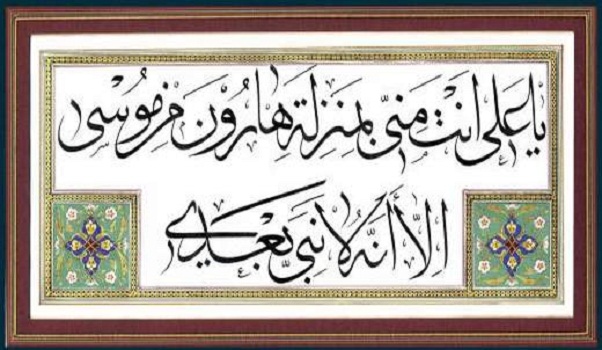 يا عَلى انتَ مِنّى بِمَنزِلَةِ هارُوْنَ مِنْ مُوْسى
اِلاّ أنَّهُ لا نَبِىَّ بَعْدى